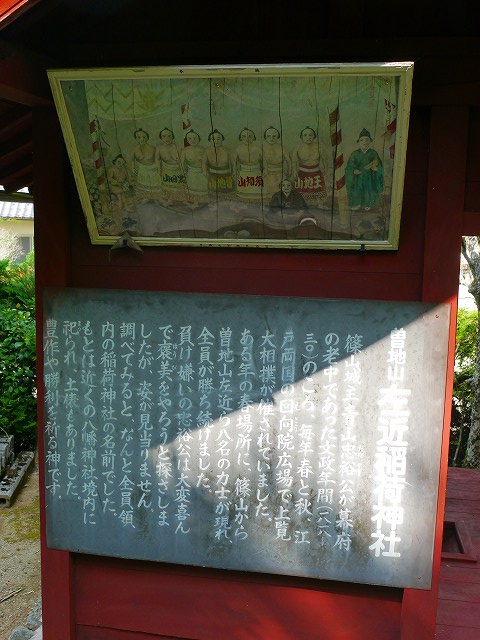 王地山
頼尊又四郎
曽地山 左近稲荷神社
篠山城主青山忠裕公が幕府
の老中であった文政年間(一八一八
三〇)のころ、毎年春と秋、江
戸両国の回向院広場で上覧
大相撲が催されていました。
ある年の春場所に、篠山から
曽地山左近ら八名の力士が現れ、
全員が勝ち続けました。
負け嫌いの忠裕公は大変喜ん
で褒美をやろうと探さしま
したが、姿が見当りません。
調べてみると、なんと全員領
内の稲荷神社の名前でした。
もとは近くの八幡神社境内に
祀られ、土俵もありました。
豊作や勝利を祈る神です。